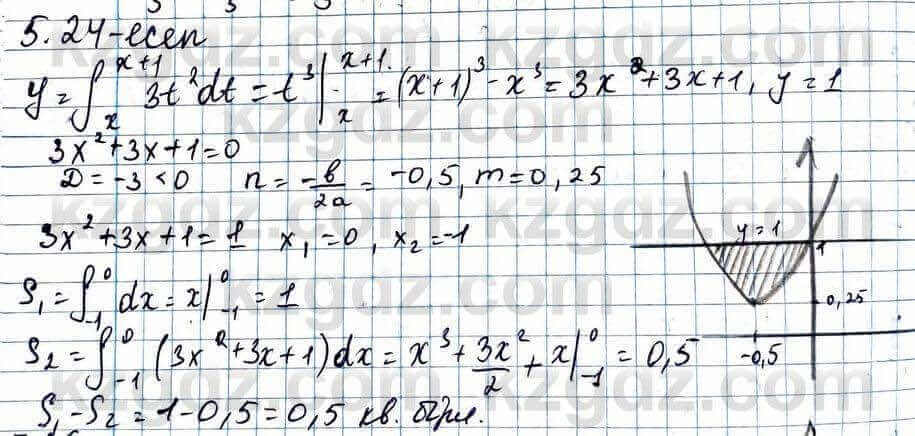 5.24-есеп
y = ∫ₓˣ⁺¹ 3t²dt = t³|ₓˣ⁺¹ = (x+1)³ - x³ = 3x²+3x+1, y=1
3x²+3x+1=0
D = -3 < 0 n = -b/2a = -0,5, m=0,25
3x²+3x+1=1 x₁=0, x₂=-1
S₁ = ∫₋₁⁰ dx = x|₋₁⁰ = 1
S₂ = ∫₋₁⁰ (3x²+3x+1)dx = x³ + 3x²/2 + x|₋₁⁰ = 0,5
S₁-S₂ = 1-0,5 = 0,5 кв. бірл.
y=1
1
0,25
-0,5
kzgdz.com